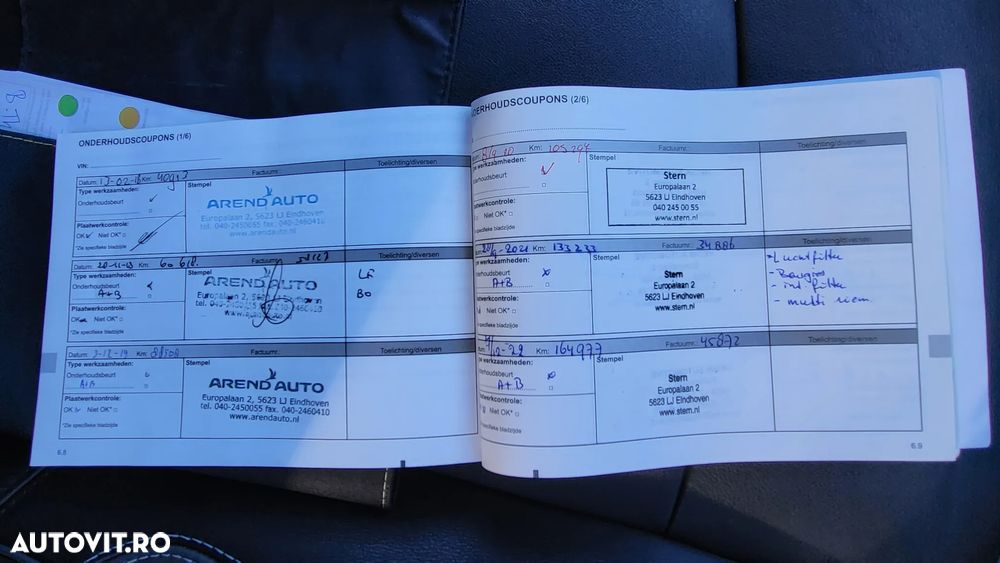 ONDERHOUDSCOUPONS (1/6)
VIN:
Toelichting/diversen
Datum: 13-02-18 Km:
Factuurnr.:
Type werkzaamheden:
Stempel
Onderhoudsbeurt
AREND AUTO
Europalaan 2, 5623 LJ Eindhoven
tel. 040-2450055 fax. 040-2460410
www.arendauto.nl
Plaatwerkcontrole:
OK Niet OK*
*Zie specifieke bladzijde
Datum: 20-11-18 Km: 60 618.
Toelichting/diversen
Type werkzaamheden:
Stempel
Onderhoudsbeurt
A+B
AREND AUTO
Europalaan 2, 5623 LJ Eindhoven
tel. 040-2450055 fax. 040-2460410
www.arendauto.nl
Plaatwerkcontrole:
OK Niet OK*
*Zie specifieke bladzijde
Datum: 2-12-19 Km:
Factuurnr.:
Toelichting/diversen
Type werkzaamheden:
Stempel
Onderhoudsbeurt
A+B
AREND AUTO
Europalaan 2, 5623 LJ Eindhoven
tel. 040-2450055 fax. 040-2460410
www.arendauto.nl
Plaatwerkcontrole:
OK Niet OK*
*Zie specifieke bladzijde
6.8
DERHOUDSCOUPONS (2/6)
Km: 105 294
Factuurnr.:
Toelichting/diversen
Type werkzaamheden:
Stempel
Onderhoudsbeurt
Stern
Europalaan 2
5623 LJ Eindhoven
040 245 00 55
www.stern.nl
Plaatwerkcontrole:
Niet OK*
*Zie specifieke bladzijde
2021 Km: 133 233
Factuurnr.: 34886
Toelichting/diversen
werkzaamheden:
Stempel
Onderhoudsbeurt
A+B
Stern
Europalaan 2
5623 LJ Eindhoven
www.stern.nl
Luchtfilter
- Bougies
- int filter
- multi riem
Plaatwerkcontrole:
Niet OK*
*Zie specifieke bladzijde
Km: 164977
Factuurnr.: 45872
Toelichting/diversen
Type werkzaamheden:
Stempel
Onderhoudsbeurt
A+B
Stern
Europalaan 2
5623 LJ Eindhoven
www.stern.nl
Plaatwerkcontrole:
Niet OK*
*Zie specifieke bladzijde
6.9
AUTOVIT.RO